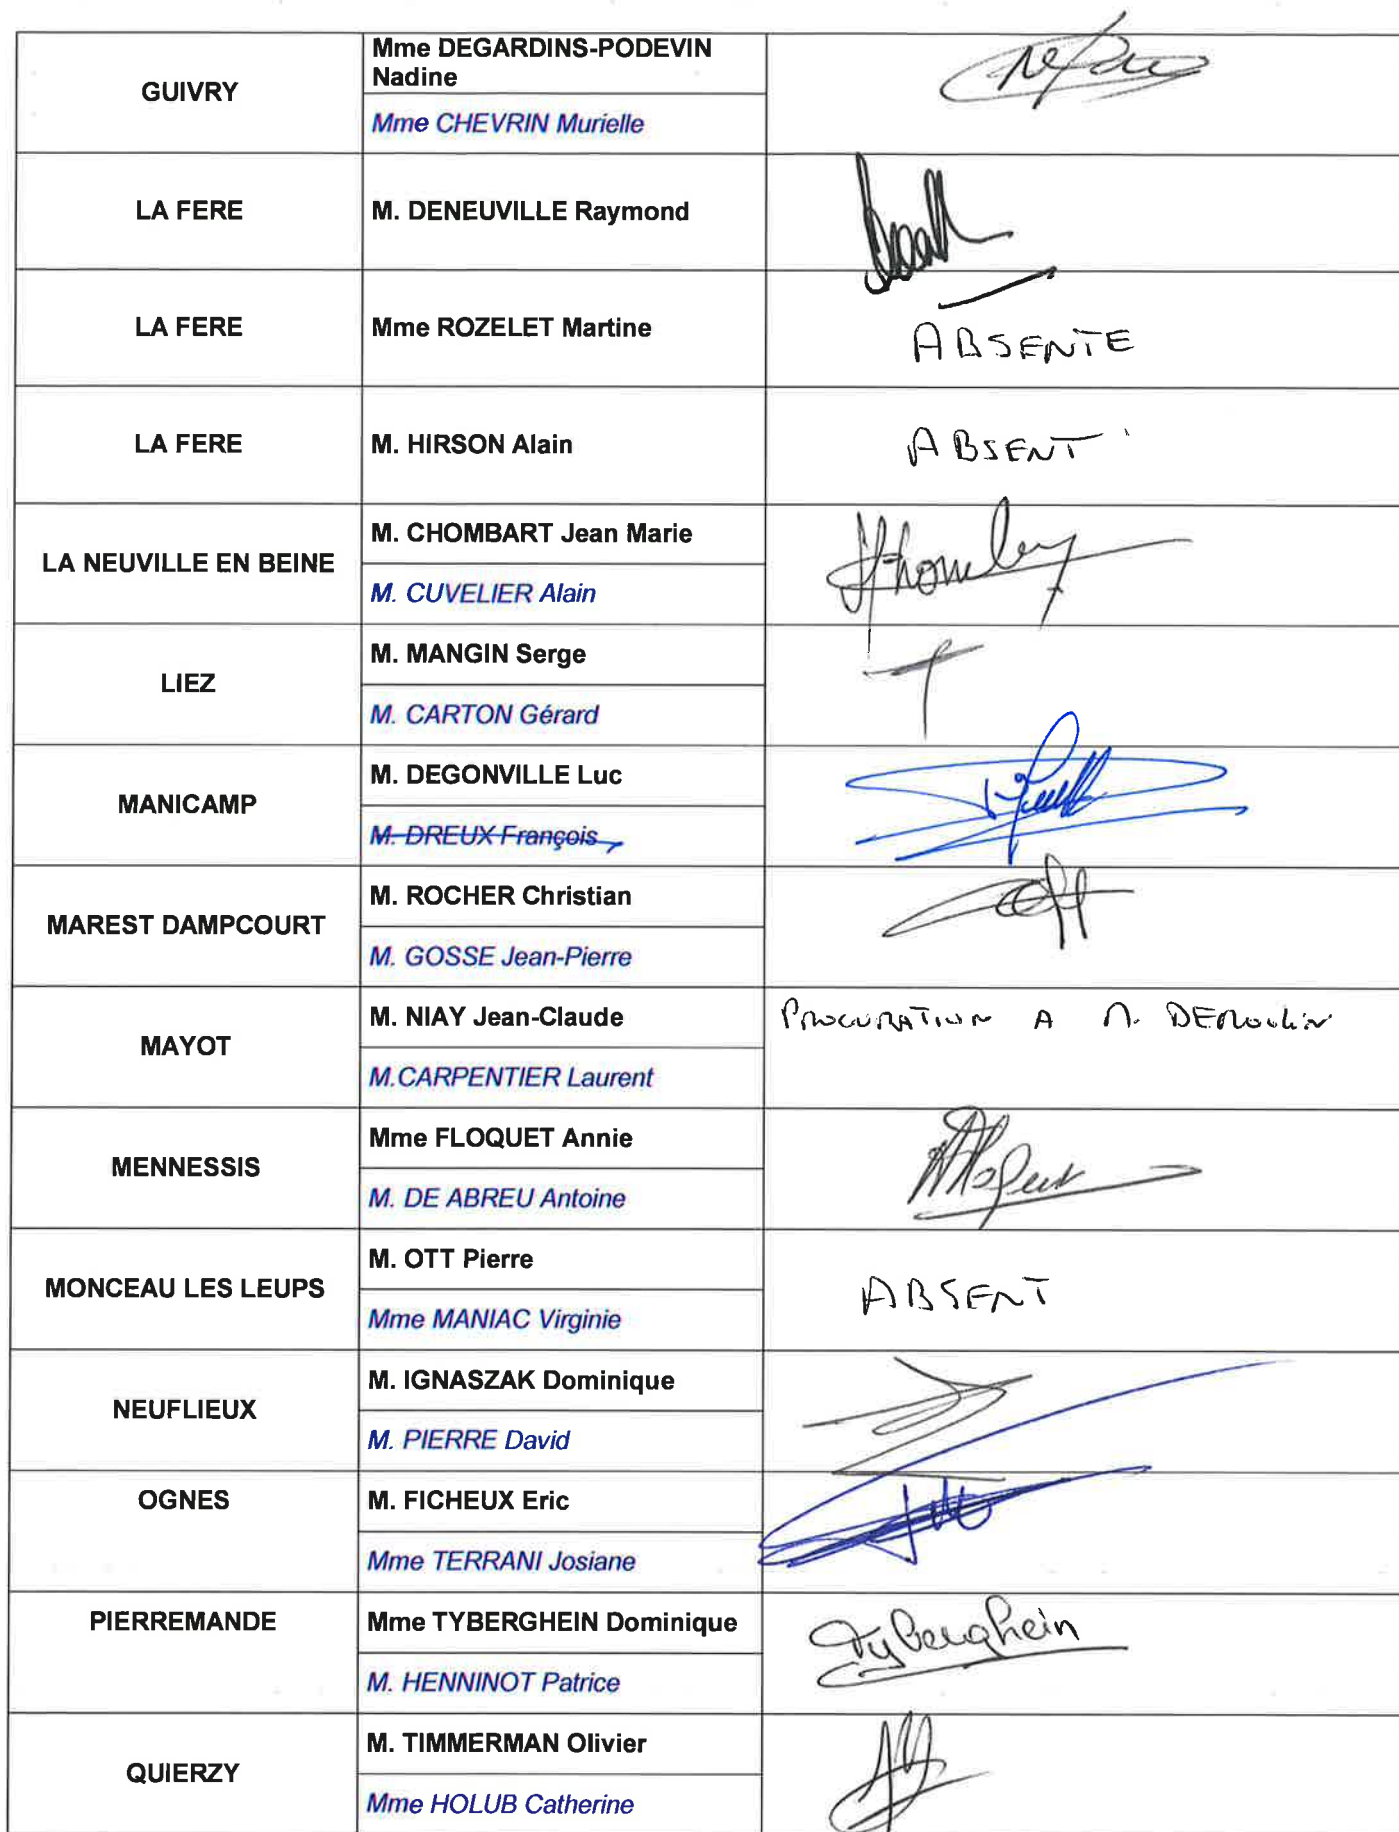 GUIVRY
Mme DEGARDINS-PODEVIN
Nadine
Mme CHEVRIN Murielle
LA FERE
M. DENEUVILLE Raymond
LA FERE
Mme ROZELET Martine
ABSENTE
LA FERE
M. HIRSON Alain
ABSENT
LA NEUVILLE EN BEINE
M. CHOMBART Jean Marie
M. CUVELIER Alain
LIEZ
M. MANGIN Serge
M. CARTON Gérard
MANICAMP
M. DEGONVILLE Luc
M. DREUX François
MAREST DAMPCOURT
M. ROCHER Christian
M. GOSSE Jean-Pierre
MAYOT
M. NIAY Jean-Claude
PROCURATION A M. DEMOULIN
M.CARPENTIER Laurent
MENNESSIS
Mme FLOQUET Annie
M. DE ABREU Antoine
MONCEAU LES LEUPS
M. OTT Pierre
ABSENT
Mme MANIAC Virginie
NEUFLIEUX
M. IGNASZAK Dominique
M. PIERRE David
OGNES
M. FICHEUX Eric
Mme TERRANI Josiane
PIERREMANDE
Mme TYBERGHEIN Dominique
Tyberghein
M. HENNINOT Patrice
QUIERZY
M. TIMMERMAN Olivier
Mme HOLUB Catherine